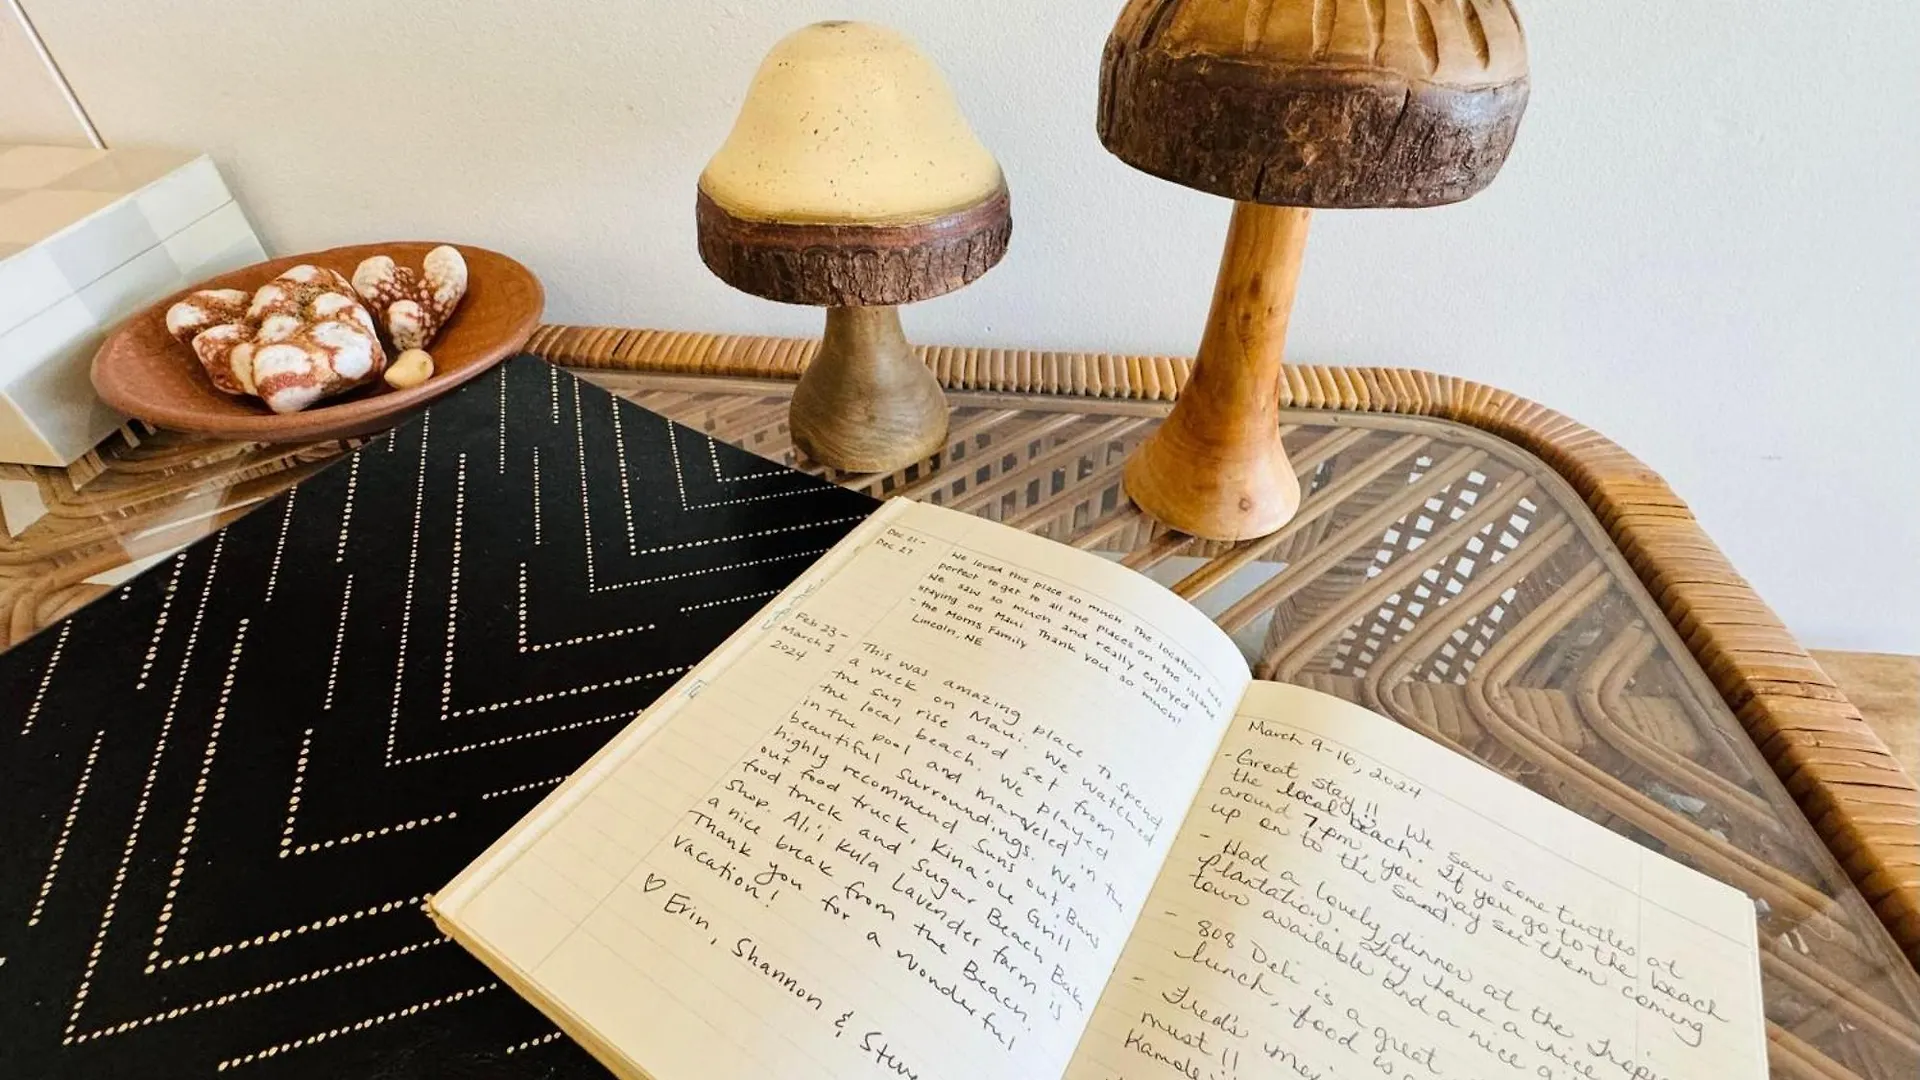 Dec 21 -
Dec 27
We loved this place so much. The location was
perfect to get to all the places on the island.
We saw so much and really enjoyed
staying on Maui. Thank you so much!
- the Morris Family
Lincoln, NE
Feb 23 -
March 1
2024
This was amazing place to spend
a week on Maui. We watched
the sun rise and set from
the local beach. We played
in the pool and marveled in the
beautiful surroundings. We
highly recommend Suns out Buns
out food truck, Kina'ole Grill
food truck and Sugar Beach Bake
Shop. Ali'i Kula Lavender farm is
a nice break from the Beach.
Thank you for a wonderful
vacation!
♡ Erin, Shannon & Steve
March 9-16, 2024
- Great stay!! We saw some turtles at
the local beach. If you go to the beach
around 7pm, you may see them coming
up on to the sand.
- Had a lovely dinner at the
Plantation. They have a nice
town available and a nice
- 808 Deli is a great
lunch, food is
- Fred's
must!!